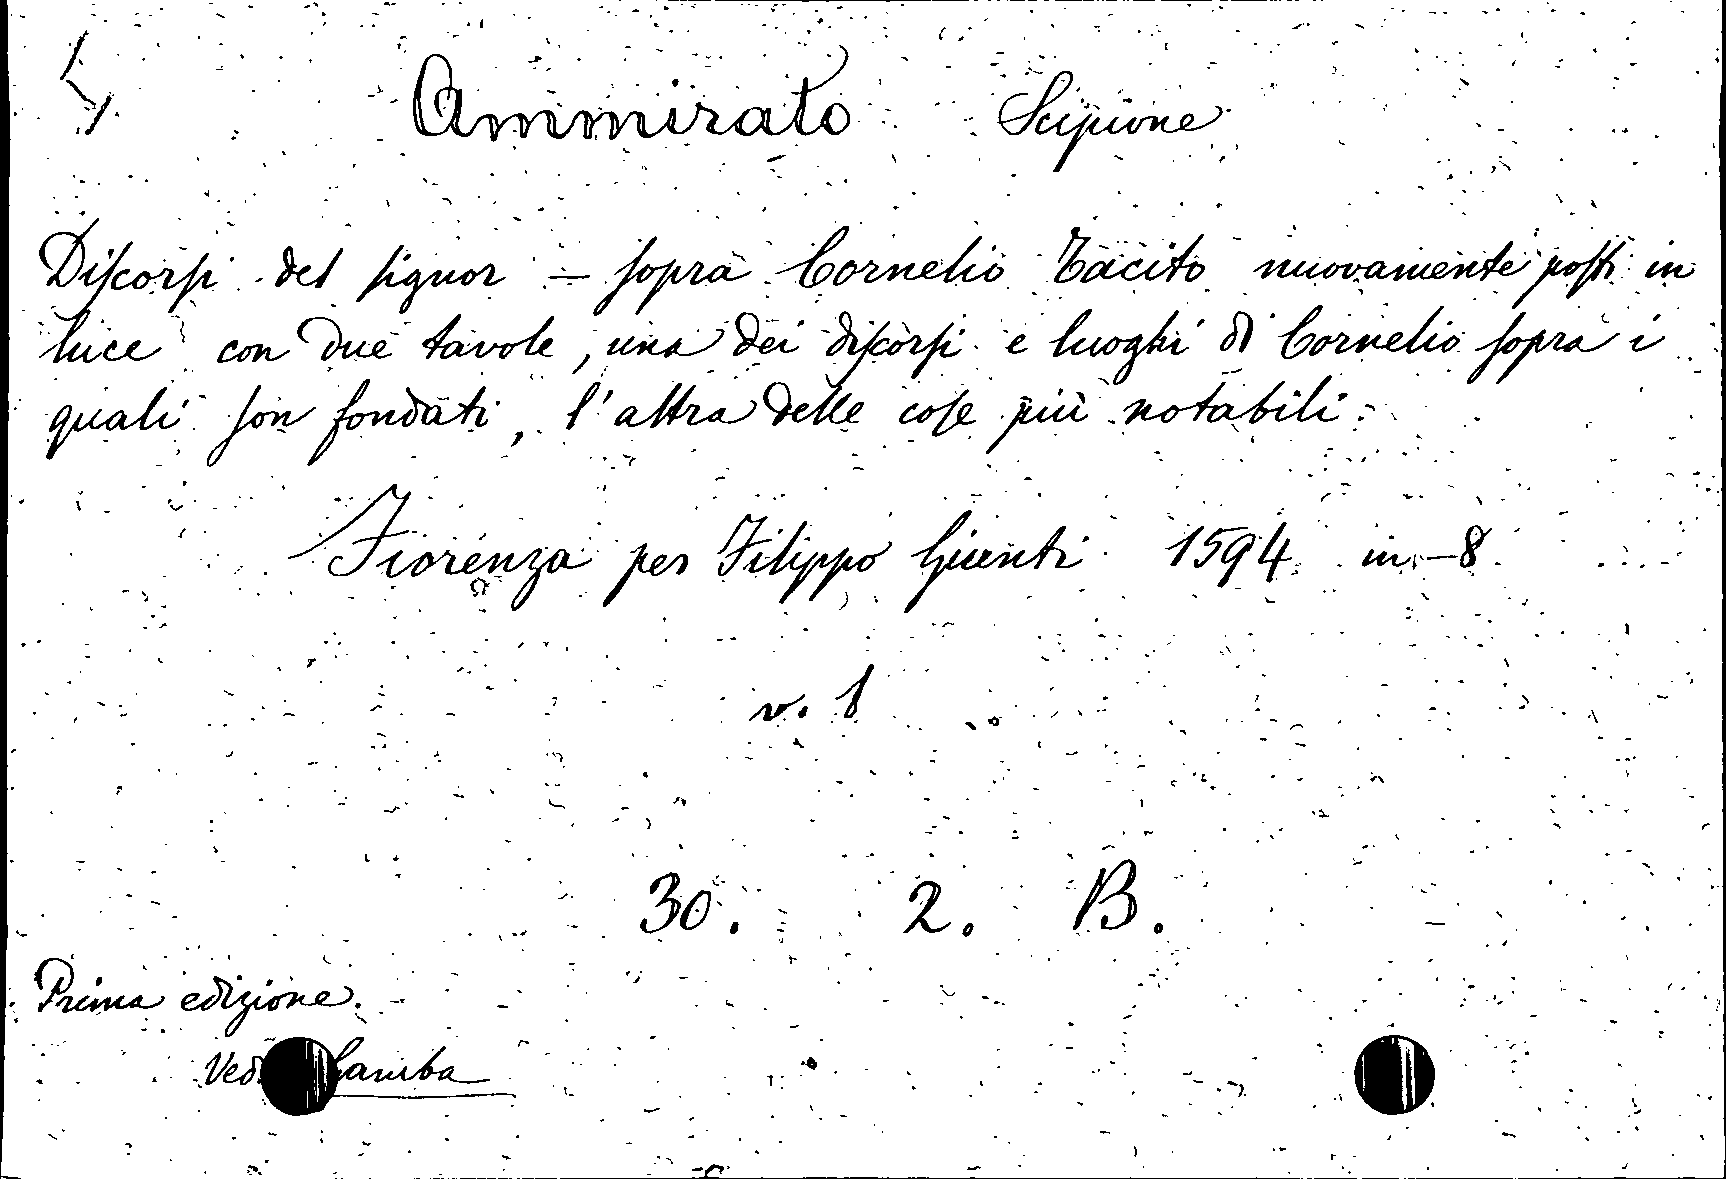 Ammirato Scipione
Diſcorſi del ſignor — ſopra Cornelio Tacito nuovamente poſti in
luce con due tavole, una dei diſcorſi e luoghi di Cornelio ſopra i
quali ſon fondati, l'altra delle coſe più notabili.
Fiorenza per Filippo Giunti 1594 in-8
v. 1
30. 2. B.
Prima edizione.
Gamba